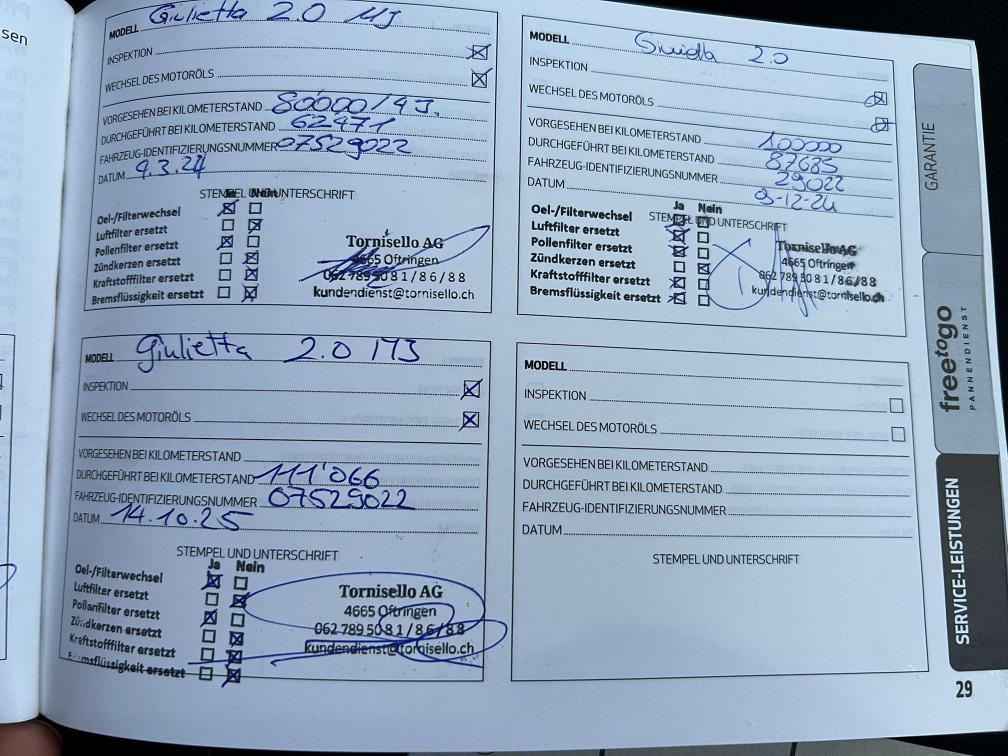 sen
MODELL Giulietta 2.0 MJ
INSPEKTION
WECHSEL DES MOTORÖLS
VORGESEHEN BEI KILOMETERSTAND 80000/4J.
DURCHGEFÜHRT BEI KILOMETERSTAND 62471
FAHRZEUG-IDENTIFIZIERUNGSNUMMER 07529022
DATUM 9.3.24
STEMPEL UND UNTERSCHRIFT
Ja Nein
Oel-/Filterwechsel
Luftfilter ersetzt
Pollenfilter ersetzt
Zündkerzen ersetzt
Kraftstofffilter ersetzt
Bremsflüssigkeit ersetzt
Tornisello AG
4665 Oftringen
062 789 50 81 / 86 / 88
kundendienst@tornisello.ch
MODELL 2.0
INSPEKTION
WECHSEL DES MOTORÖLS
VORGESEHEN BEI KILOMETERSTAND 100000
DURCHGEFÜHRT BEI KILOMETERSTAND 87685
FAHRZEUG-IDENTIFIZIERUNGSNUMMER 29022
DATUM 03-12-24
STEMPEL UND UNTERSCHRIFT
Ja Nein
Oel-/Filterwechsel
Luftfilter ersetzt
Pollenfilter ersetzt
Zündkerzen ersetzt
Kraftstofffilter ersetzt
Bremsflüssigkeit ersetzt
Tornisello AG
4665 Oftringen
062 789 50 81 / 86 / 88
kundendienst@tornisello.ch
MODELL Giulietta 2.0 MJ
INSPEKTION
WECHSEL DES MOTORÖLS
VORGESEHEN BEI KILOMETERSTAND
DURCHGEFÜHRT BEI KILOMETERSTAND 111'066
FAHRZEUG-IDENTIFIZIERUNGSNUMMER 07529022
DATUM 14.10.25
STEMPEL UND UNTERSCHRIFT
Ja Nein
Oel-/Filterwechsel
Luftfilter ersetzt
Pollenfilter ersetzt
Zündkerzen ersetzt
Kraftstofffilter ersetzt
Bremsflüssigkeit ersetzt
Tornisello AG
4665 Oftringen
062 789 50 81 / 86 / 88
kundendienst@tornisello.ch
MODELL
INSPEKTION
WECHSEL DES MOTORÖLS
VORGESEHEN BEI KILOMETERSTAND
DURCHGEFÜHRT BEI KILOMETERSTAND
FAHRZEUG-IDENTIFIZIERUNGSNUMMER
DATUM
STEMPEL UND UNTERSCHRIFT
GARANTIE
freetogo
PANNENDIENST
SERVICE-LEISTUNGEN
29